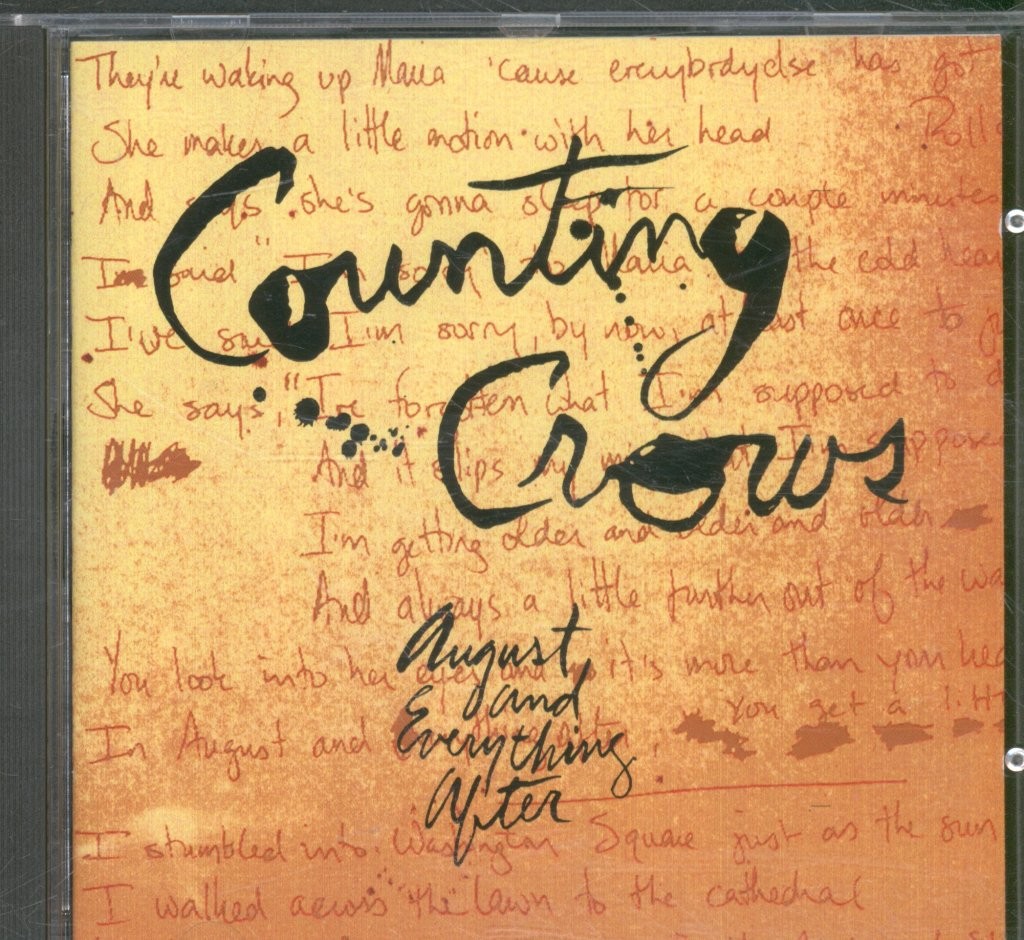 Counting
Crows
August
and
Everything
After
They're waking up Maria 'cause everybodyelse has got
She makes a little motion with her head
And says she's gonna sleep for a couple minutes
I said "I'm sorry" to Maria the cold hear
I've said I'm sorry, by now, at least once to
She says, "I've forgotten what I'm supposed to d
And it slips my mind what I'm suppose
I'm getting older and older and older
And always a little further out of the wa
You look into her eyes and it's more than your hea
In August and
You get a litt
I stumbled into Washington Square just as the sun
I walked across the lawn to the cathedral